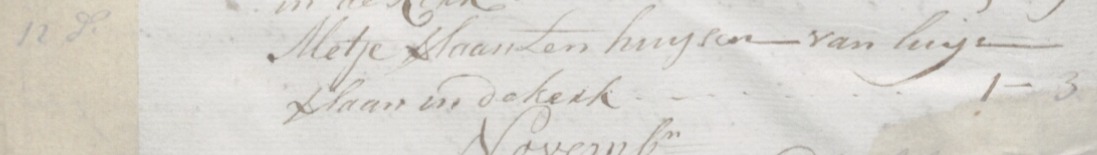 in de Kerk
12 d:
Metje Slaan ten huysen van luije
Slaan in de kerk 1 - 3
Novemb:r